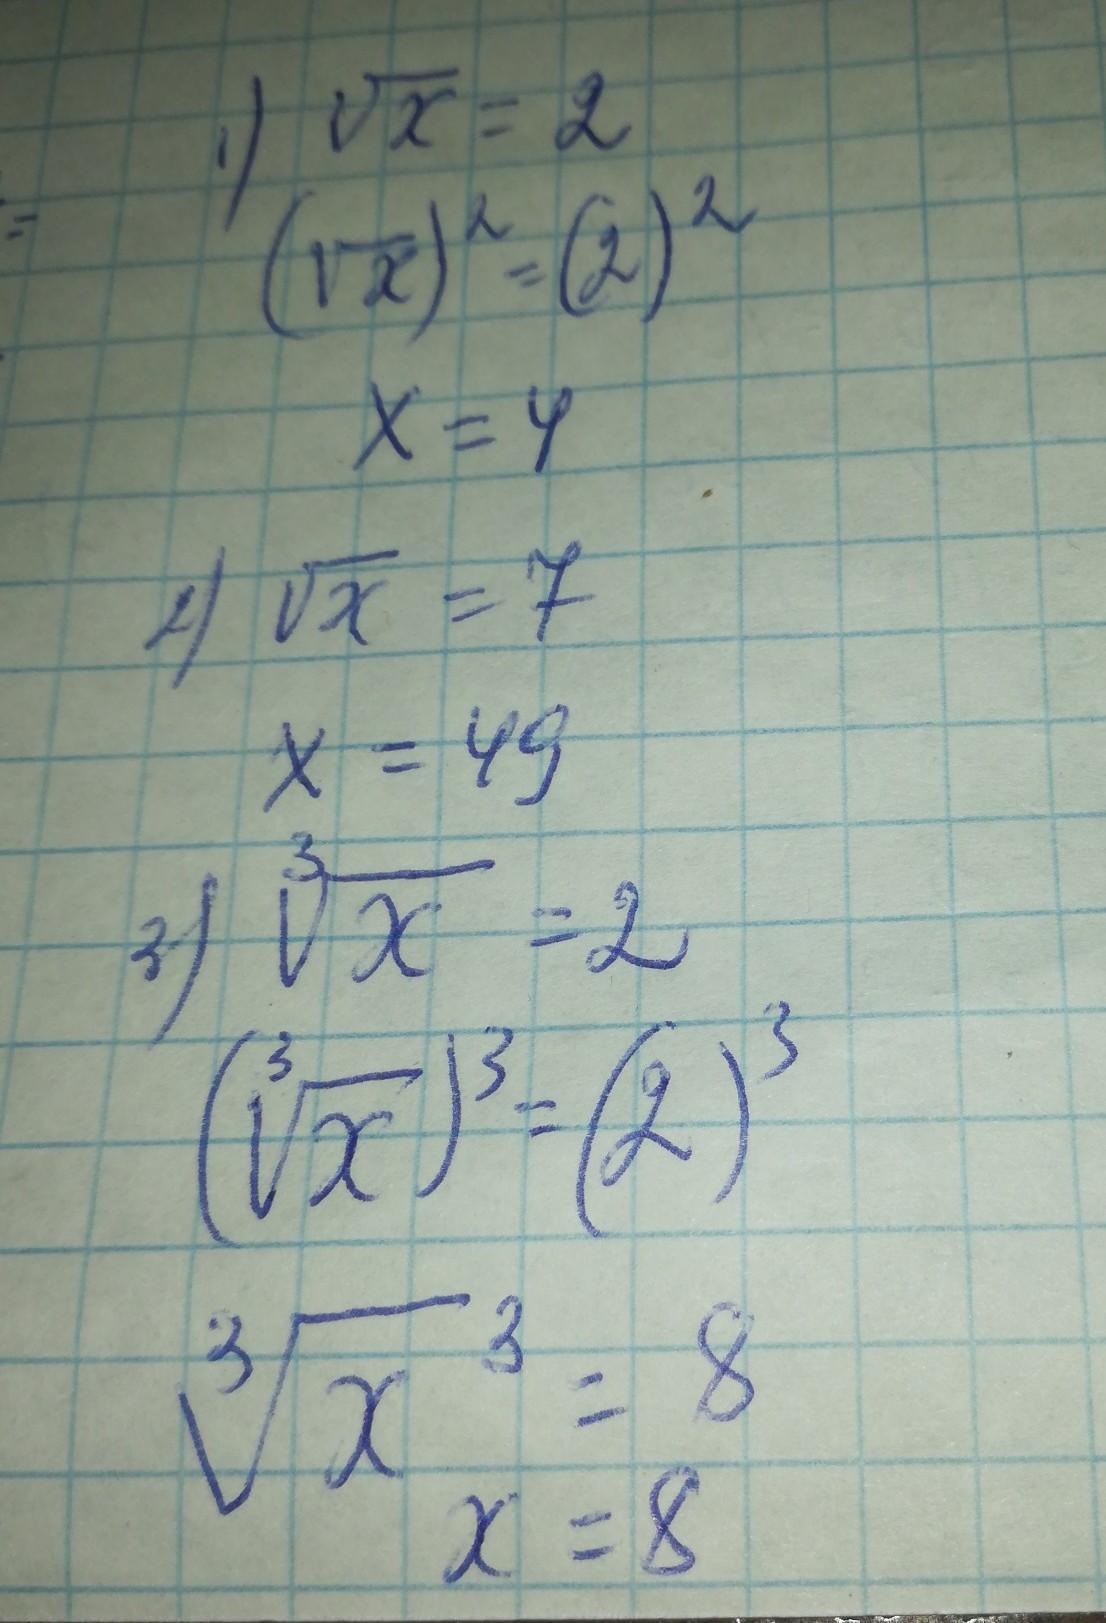 1) √x = 2
(√x)² = (2)²
x = 4
2) √x = 7
x = 49
3) ³√x = 2
(³√x)³ = (2)³
³√x ³ = 8
x = 8